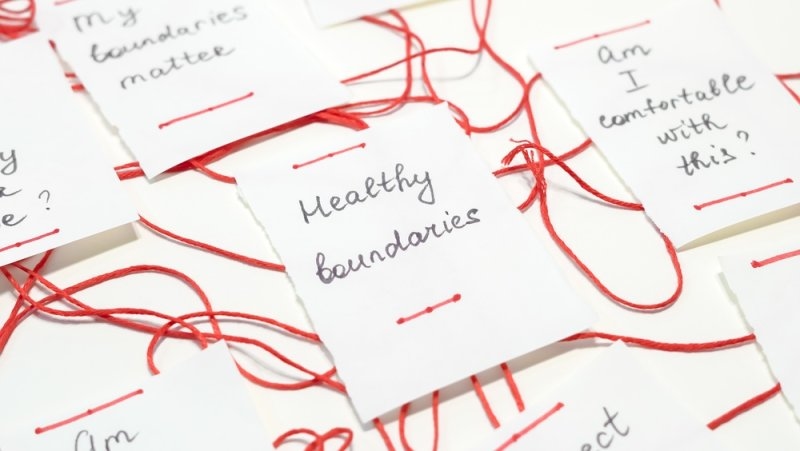 My
boundaries
matter
Am
I
comfortable
with
this?
Healthy
boundaries
Am